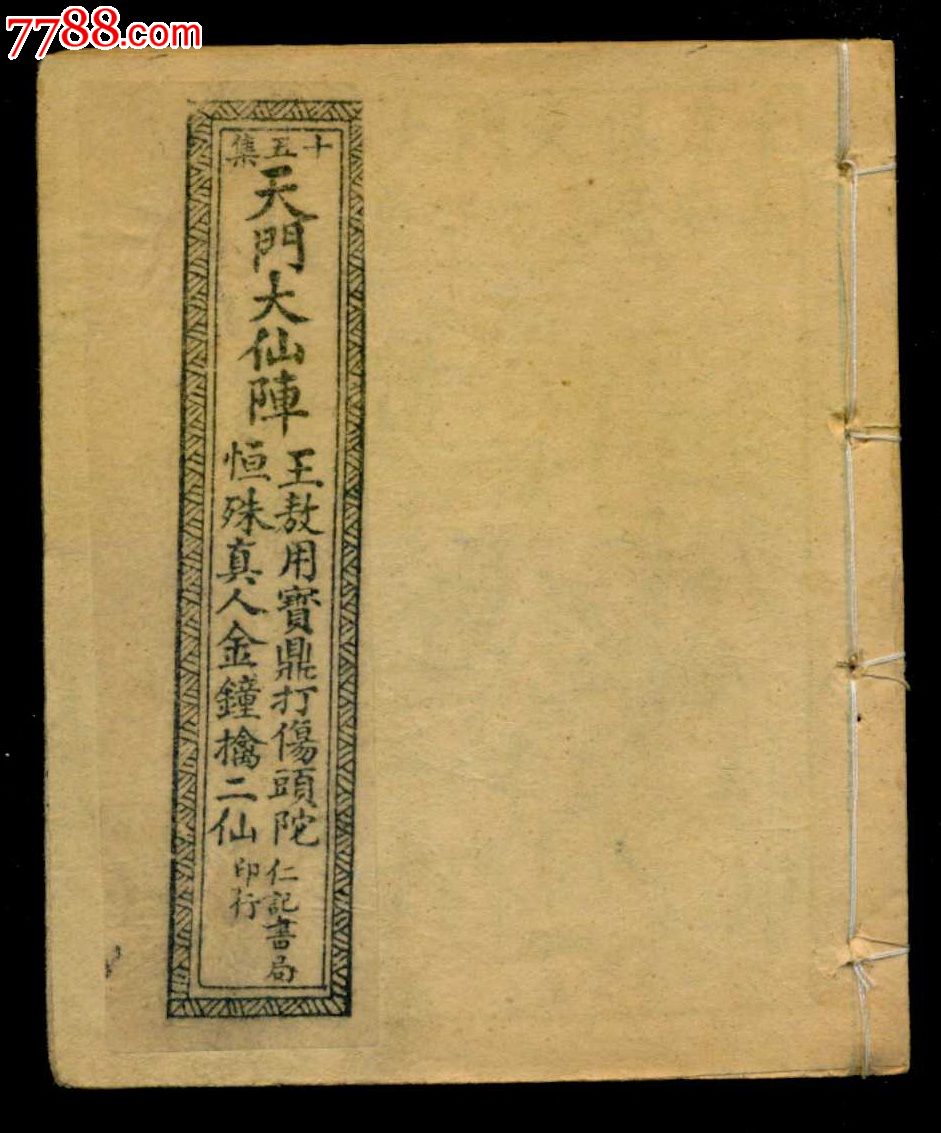 7788.com
十五集
天門大仙陣
王敖用寳鼎打傷頭陀
恒殊真人金鐘擒二仙
仁記書局
印行